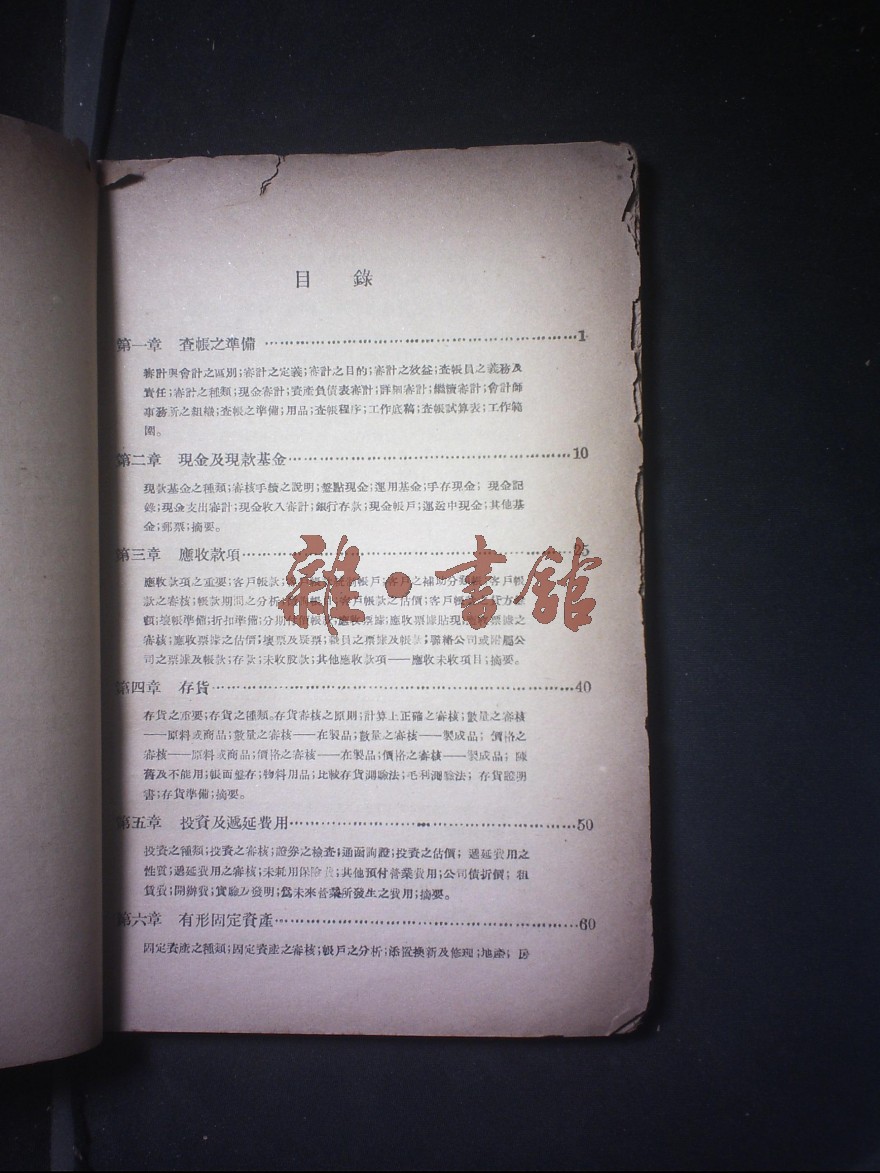 目 錄
第一章 查帳之準備 1
審計與會計之區別;審計之定義;審計之目的;審計之效益;查帳員之義務及
責任;審計之種類;現金審計;資產負債表審計;詳細審計;繼續審計;會計師
事務所之組織;查帳之準備;用品;查帳程序;工作底稿;查帳試算表;工作範
圍。
第二章 現金及現款基金 10
現款基金之種類;審核手續之說明;盤點現金;運用基金;手存現金;現金記
錄;現金支出審計;現金收入審計;銀行存款;現金帳戶;運送中現金;其他基
金;郵票;摘要。
第三章 應收款項 5
應收款項之重要;客戶帳款;帳戶;客戶之補助分類帳;客戶帳
款之審核;帳款期間之分析;客戶帳款之估價;客戶帳款之貸方
額;壞帳準備;折扣準備;分期付價帳款;應收票據;應收票據貼現;票據之
審核;應收票據之估價;壞票及疑票;職員之票據及帳款;聯絡公司或附屬公
司之票據及帳款;存款;未收股款;其他應收款項——應收未收項目;摘要。
雜·書館
第四章 存貨 40
存貨之重要;存貨之種類。存貨審核之原則;計算上正確之審核;數量之審核
——原料或商品;數量之審核——在製品;數量之審核——製成品;價格之
審核——原料或商品;價格之審核——在製品;價格之審核——製成品;陳
舊及不能用;帳面盤存;物料用品;比較存貨測驗法;毛利測驗法;存貨證明
書;存貨準備;摘要。
第五章 投資及遞延費用 50
投資之種類;投資之審核;證券之檢查;通函詢證;投資之估價;遞延費用之
性質;遞延費用之審核;未耗用保險費;其他預付營業費用;公司債折價;租
賃費;開辦費;實驗及發明;為未來營業所發生之費用;摘要。
第六章 有形固定資產 60
固定資產之種類;固定資產之審核;帳戶之分析;添置換新及修理;地產;房